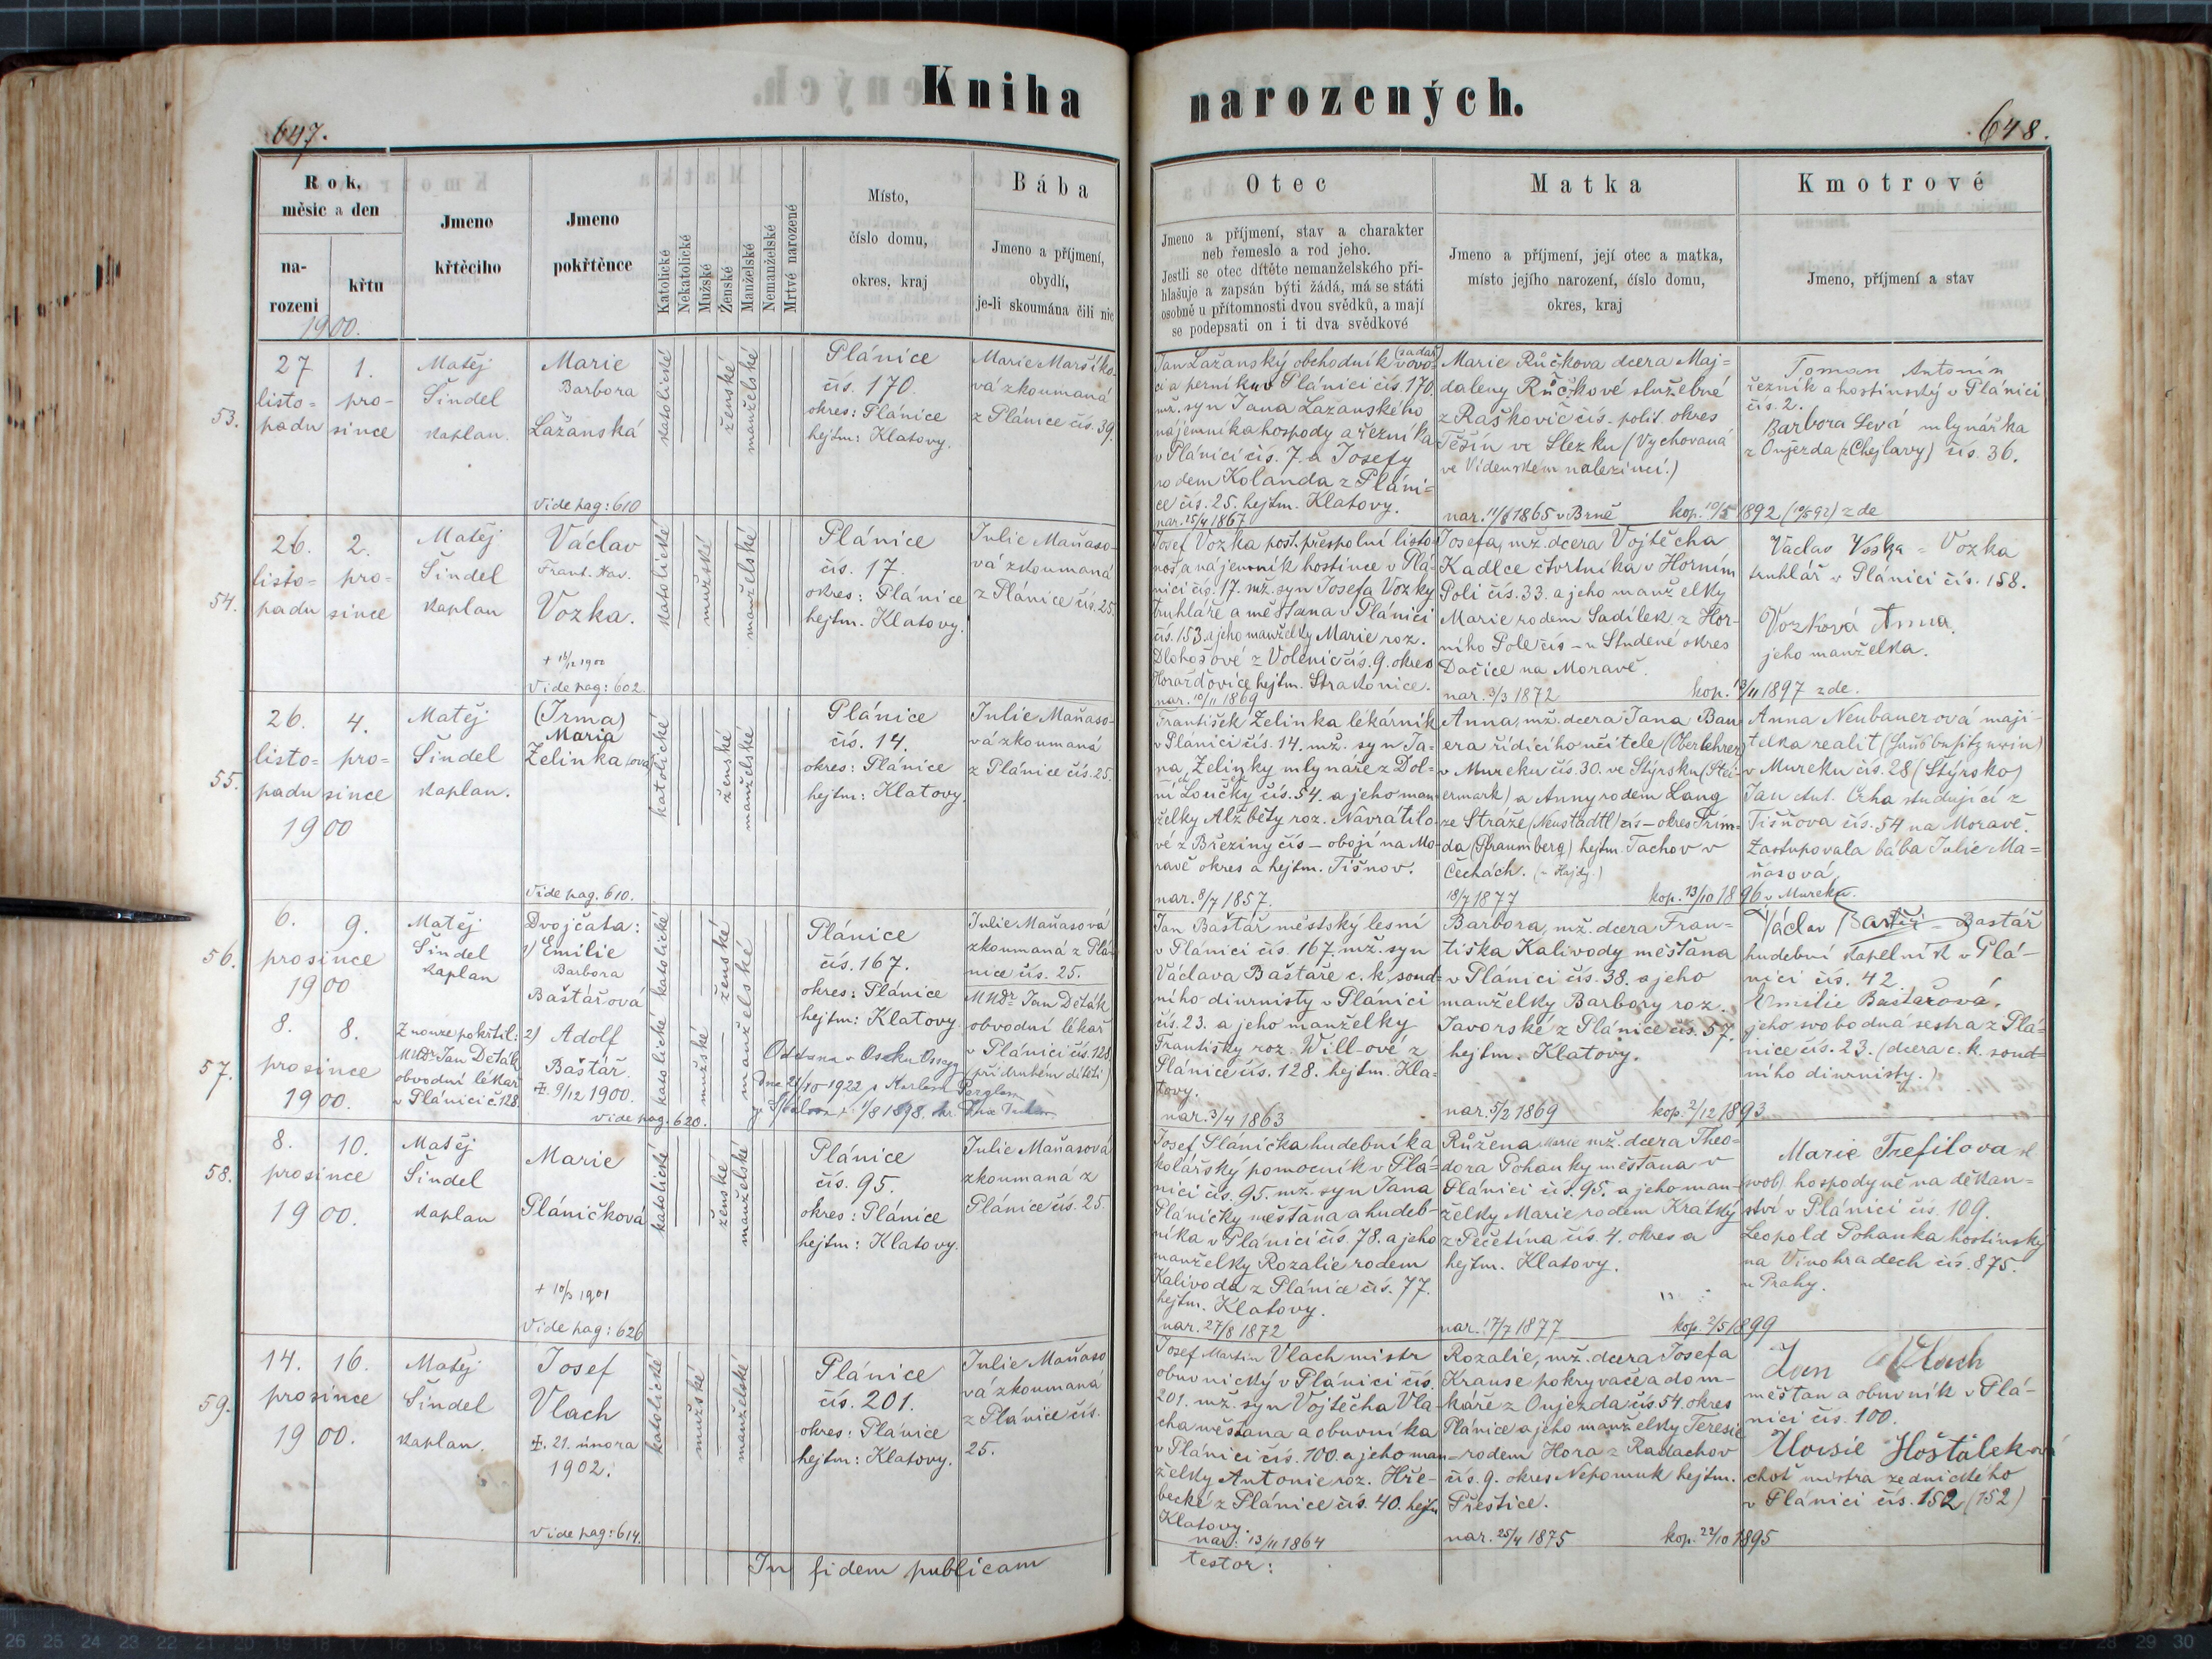 Kniha
narozených.
647.
648.
Rok,
měsíc a den
na-
rození
křtu
1900.
Jmeno
křtěcího
Jmeno
pokřtěnce
Katolické
Nekatolické
Mužské
Ženské
Manželské
Nemanželské
Mrtvé narozené
Místo,
číslo domu,
okres, kraj
Bába
Jmeno a příjmení,
obydlí,
je-li skoumána čili nic
Otec
Jmeno a příjmení, stav a charakter
neb řemeslo a rod jeho.
Jestli se otec dítěte nemanželského při-
hlašuje a zapsán býti žádá, má se státi
osobně u přítomnosti dvou svědků, a mají
se podepsati on i ti dva svědkové
Matka
Jmeno a příjmení, její otec a matka,
místo jejího narození, číslo domu,
okres, kraj
Kmotrové
Jmeno, příjmení a stav
53.
27 1.
listo= pro-
padu since
Matěj
Šindel
kaplan.
Marie
Barbora
Lažanská
Vide pag: 610
katolické
ženské
manželské
Plánice
čís. 170.
okres: Plánice
hejtm: Klatovy.
Marie Maršíko-
vá zkoumaná
z Plánice čís. 39.
Jan Lažanský obchodník (sadař) s ovo-
cí a perníkem v Plánici čís. 170.
mž. syn Jana Lažanského
nájemníka hospody a řezníka
v Plánici čís. 7. a Josefy
rodem Kolanda z Pláni-
ce čís. 25. hejtm. Klatovy.
nar. 25/4 1867
Marie Růčkova dcera Maj-
daleny Růčkové služebné
z Raškovič čís. polit. okres
Těšín ve Slezku (Vychovaná
ve Vídenském nalezinci.)
nar. 11/8 1865 v Brně kop. 10/5 1892 (10/5 92) zde
Toman Antonín
řezník a hostinský v Plánici
čís. 2.
Barbora Levá mlynářka
z Oujezda (Chejlavy) čís. 36.
54.
26. 2.
listo= pro-
padu since
Matěj
Šindel
kaplan
Václav
Frant. Xav.
Vozka.
+ 16/12 1900
Vide pag: 602.
katolické
mužské
manželské
Plánice
čís. 17.
okres: Plánice
hejtm. Klatovy.
Julie Maňaso-
vá zkoumaná
z Plánice čís. 25.
Josef Vozka post. přespolní listo-
noš a nájemník hostince v Plá-
nici čís. 17. mž. syn Josefa Vozky
truhláře a měšťana v Plánici
čís. 153 a jeho manželky Marie roz.
Dlohošové z Volenic čís. 9. okres
Horažďovice hejtm. Strakonice.
nar. 10/11 1869
Josefa, mž. dcera Vojtěcha
Kadlce čtvrtníka v Horním
Poli čís. 33. a jeho manželky
Marie rodem Sadílek z Hor-
ního Pole čís – u Studené okres
Dačice na Moravě.
nar. 3/3 1872 kop. 13/11 1897 zde.
Václav Voska = Vozka
truhlář v Plánici čís. 158.
Vozková Anna
jeho manželka.
55.
26. 4.
listo= pro=
padu since
1900
Matěj
Šindel
kaplan.
(Irma)
Maria
Zelinka (ová)
Vide pag. 610.
katolické
ženské
manželské
Plánice
čís. 14.
okres: Plánice
hejtm: Klatovy.
Julie Maňaso-
vá zkoumaná
z Plánice čís. 25.
František Zelinka lékárník
v Plánici čís. 14. mž. syn Ja-
na Zelinky mlynáře z Dol-
ní Loučky čís. 54. a jeho man-
želky Alžběty roz. Navrátilo-
vé z Březiny čís – obojí na Mo-
ravě okres a hejtm. Tišnov.
nar. 8/7 1857.
Anna, mž. dcera Jana Bau-
era řídícího učitele (Oberlehrer)
v Mureku čís. 30. ve Štýrsku (Stei-
ermark) a Anny rodem Lang
ze Stráže (Neustadtl) čís – okres Přim-
da (Pfraumberg) hejtm. Tachov v
Čechách. (– Hajdy.)
18/7 1877 kop. 13/10 1896 v Mureku.
Anna Neubauerová maji-
telka realit (Hausbesitzerin)
v Mureku čís. 28 (Štýrsko)
Jan Ant. Crha studující z
Tišňova čís. 54 na Moravě.
Zastupovala bába Julie Ma=
ňasová
56.
6. 9.
prosince
1900
Matěj
Šindel
kaplan
Dvojčata:
1) Emilie
Barbora
Baštářová
katolické
ženské
manželské
Plánice
čís. 167.
okres: Plánice
hejtm: Klatovy.
Julie Maňasová
zkoumaná z Plá-
nice čís. 25.
57.
8. 8.
prosince
1900.
Z nouze pokřtil:
MUDr Jan Deták
obvodní lékař
v Plánici č. 128.
2) Adolf
Baštář.
✝. 9/12 1900.
vide pag. 620.
katolické
mužské
manželské
MUDr Jan Děták
obvodní lékař
v Plánici čís. 128
(při druhém dítěti)
Oddána v Oseku Ossegg
dne 21/10 1922 s Karlem
Jan Baštář městský lesní
v Plánici čís. 167. mž. syn
Václava Baštáře c. k. soud=
ního diurnisty v Plánici
čís. 23. a jeho manželky
Františky roz. Will-ové z
Plánice čís. 128. hejtm. Kla=
tovy.
nar. 3/4 1863
Barbora, mž. dcera Fran-
tiška Kalivody měšťana
v Plánici čís. 38. a jeho
manželky Barbory roz.
Javorské z Plánice čís. 57.
hejtm. Klatovy.
nar. 5/2 1869 kop. 2/12 1893
Václav = Bastář
hudební kapelník v Plá-
nici čís. 42.
Emilie Baštářová.
jeho svobodná sestra z Plá-
nice čís. 23. (dcera c. k. soud=
ního diurnisty.)
58.
8. 10.
prosince
1900.
Matěj
Šindel
kaplan
Marie
Pláničková
+ 10/3 1901
Vide pag: 626
katolické
ženské
manželské
Plánice
čís. 95.
okres: Plánice
hejtm: Klatovy.
Julie Maňasová
zkoumaná z
Plánice čís. 25.
Josef Plánička hudebníka
kolářský pomocník v Plá=
nici čís. 95. mž. syn Jana
Pláničky měšťana a hudeb-
níka v Plánici čís. 78. a jeho
manželky Rozalie rodem
Kalivoda z Plánice čís. 77.
hejtm. Klatovy.
nar. 27/8 1872
Růžena Marie mž. dcera Theo=
dora Pohanky měšťana v
Plánici čís. 95. a jeho man-
želky Marie rodem Krátký
z Pečetína čís. 4. okres a
hejtm. Klatovy.
nar. 17/7 1877 kop. 2/5 1899
Marie Trefilova
svob. hospodyně na děkan=
ství v Plánici čís. 109.
Leopold Pohanka hostinský
na Vinohradech čís. 875.
u Prahy.
59.
14. 16.
prosince
1900.
Matěj
Šindel
kaplan.
Josef
Vlach
✝. 21. února
1902.
Vide pag: 614.
katolické
mužské
manželské
Plánice
čís. 201.
okres: Plánice
hejtm: Klatovy.
Julie Maňaso
vá zkoumaná
z Plánice čís.
25.
Josef Martin Vlach mistr
obuvnický v Plánici čís.
201. mž. syn Vojtěcha Vla-
cha měšťana a obuvníka
v Plánici čís. 100. a jeho man=
želky Antonie roz. Hře-
becké z Plánice čís. 40. hejtm
Klatovy.
nar. 13/11 1864
Rozalie, mž. dcera Josefa
Krause pokryvače a dom-
káře z Oujezda čís. 54. okres
Plánice a jeho manželky Teresie
rodem Hora z Radachov
čís. 9. okres Nepomuk hejtm.
Přeštice.
nar. 25/4 1875 kop. 22/10 1895
Jan Vlach
měšťan a obuvník v Plá-
nici čís. 100.
Aloisie Hošťáleková
choť mistra zednického
v Plánici čís. 152 (152)
In fidem publicam
testor: